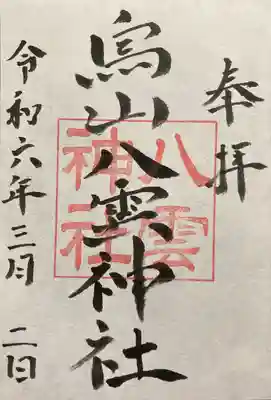 奉拝
烏山八雲神社
八雲
神社
令和六年三月二日